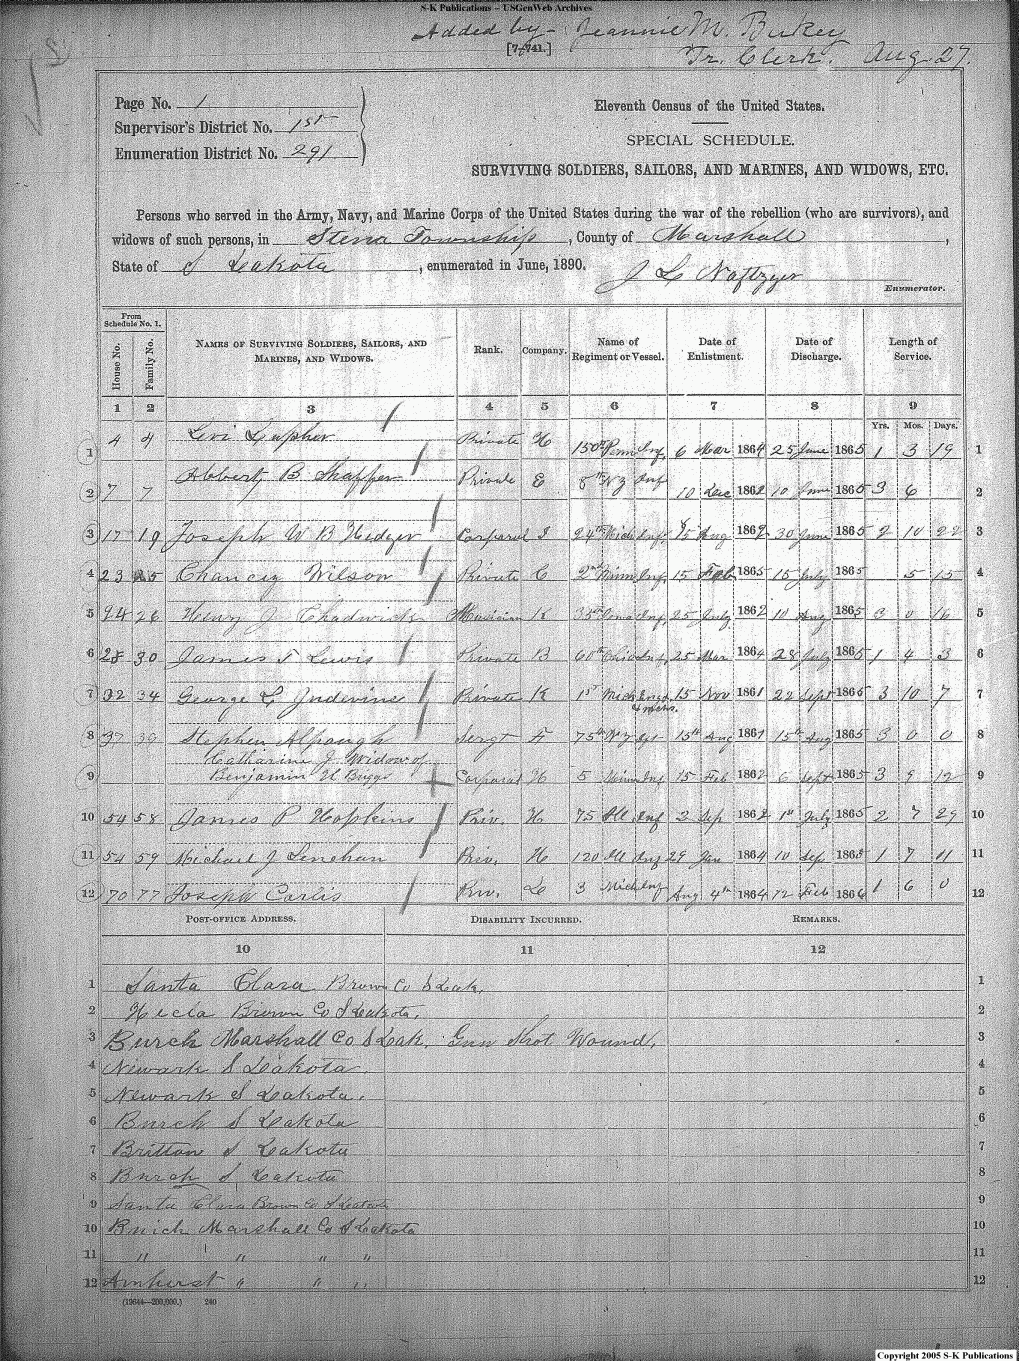 S-K Publications – USGenWeb Archives
Added by - Jeannie M. Burkey
[7-741.]
Tr. Clerk. Aug. 27.
Page No. 1
Supervisor's District No. 1st
Enumeration District No. 291
Eleventh Census of the United States.
SPECIAL SCHEDULE.
SURVIVING SOLDIERS, SAILORS, AND MARINES, AND WIDOWS, ETC.
Persons who served in the Army, Navy, and Marine Corps of the United States during the war of the rebellion (who are survivors), and
widows of such persons, in Stena Township, County of Marshall,
State of S Dakota, enumerated in June, 1890.
J L Naftzger
Enumerator.
From Schedule No. 1.
House No. Family No. NAMES OF SURVIVING SOLDIERS, SAILORS, AND MARINES, AND WIDOWS. Rank. Company. Name of Regiment or Vessel. Date of Enlistment. Date of Discharge. Length of Service.
1 2 3 4 5 6 7 8 9
Yrs. Mos. Days.
1 4 4 Levi Lupher Private H 150th Penn Inf. 6 Mar 1864 25 June 1865 1 3 19 1
2 7 7 B Shaffer Private E 8th N Y Inf 10 Dec 1862 10 June 1865 3 6 2
3 17 19 Joseph W B Hedger Corporal I 24th Mich Inf. 15 Aug 1862 30 June 1865 2 10 22 3
4 23 25 Chancey Wilson Private C 2nd Minn Inf. 15 Feb 1865 15 July 1865 5 15 4
5 24 26 Henry J Chadwick Musician K 35th Iowa Inf. 25 July 1862 10 Aug 1865 3 0 16 5
6 28 30 James T Lewis Private B 60th Ohio Inf. 25 Mar 1864 28 July 1865 1 4 3 6
7 32 34 George L Judevine Private K 1st Mich Engs & mchs. 15 Nov 1861 22 Sept 1865 3 10 7 7
8 37 39 Stephen Alpaugh Sergt F 75th N Y 15th Aug 1861 15th Aug 1865 3 0 0 8
Catharine J Widow of
9 Benjamin H Buggs Corporal H 5 Minn Inf 15 Feb 1862 6 Sept 1865 3 9 12 9
10 54 58 James P Hopkins Priv. H 75 Ill. Inf 2 Sep 1862 1st July 1865 2 7 29 10
11 54 59 Michael J Lenehan Priv. H 120 Ill Inf 29 Jan 1864 10 Sep 1865 1 7 11 11
12 70 77 Joseph Corlis Priv. L 3 Mich Inf Aug 4th 1864 12 Feb 1866 1 6 0 12
POST-OFFICE ADDRESS. DISABILITY INCURRED. REMARKS.
10 11 12
1 Santa Clara Brown Co S Dak. 1
2 Hecla Brown Co S Dakota. 2
3 Burch Marshall Co S Dak. Gun Shot Wound. 3
4 Newark S Dakota. 4
5 Newark S Dakota. 5
6 Burch S Dakota 6
7 Britton S Dakota 7
8 Burch S Dakota 8
9 Santa Clara Brown Co S Dakota 9
10 Burch Marshall Co S Dakota 10
11 " " " " 11
12 Amherst " " " 12
(19644—200,000.) 240
Copyright 2005 S-K Publications